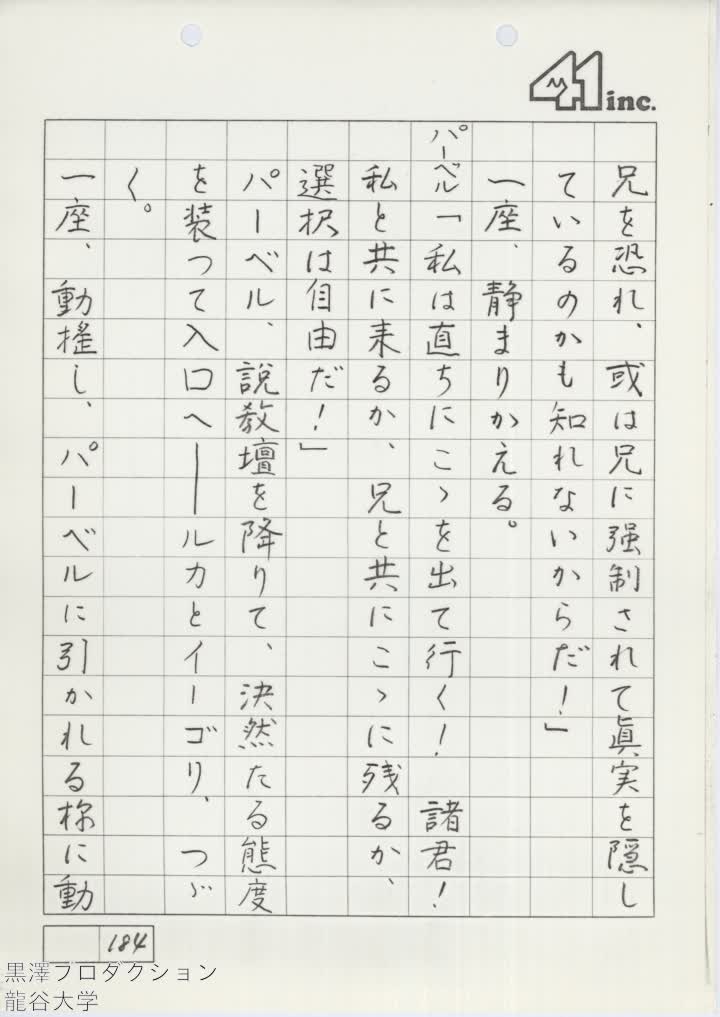 41 inc.
兄を恐れ、或は兄に强制されて眞実を隠し
ているのかも知れないからだ！」
一座、静まりかえる。
パーベル「私は直ちにこゝを出て行く！諸君！
私と共に来るか、兄と共にこゝに残るか、
選択は自由だ！」
パーベル、説教壇を降りて、決然たる態度
を装つて入口へ――ルカとイーゴリ、つゞ
く。
一座、動搖し、パーベルに引かれる様に動
184
黒澤プロダクション
龍谷大学